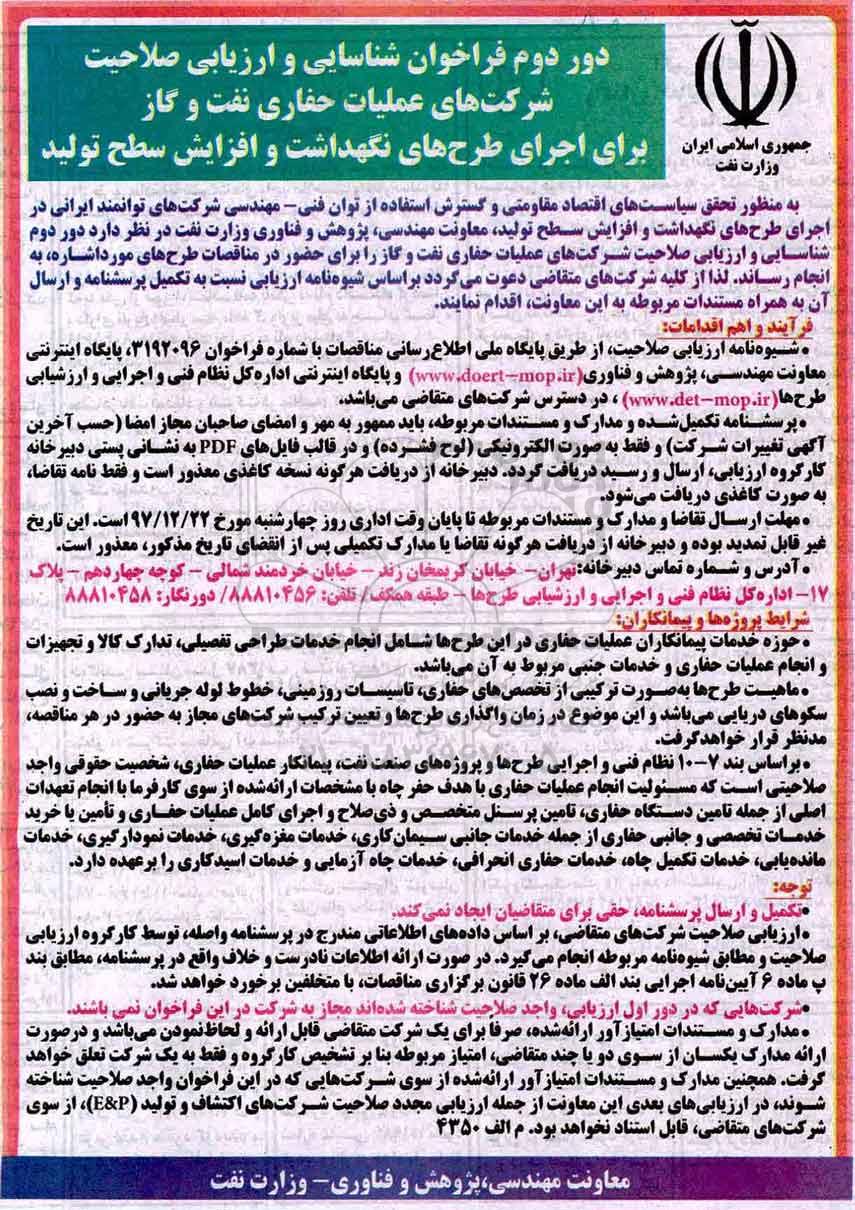 جمهوری اسلامی ایران
وزارت نفت
دور دوم فراخوان شناسایی و ارزیابی صلاحیت
شرکت‌های عملیات حفاری نفت و گاز
برای اجرای طرح‌های نگهداشت و افزایش سطح تولید
به منظور تحقق سیاست‌های اقتصاد مقاومتی و گسترش استفاده از توان فنی- مهندسی شرکت‌های توانمند ایرانی در
اجرای طرح‌های نگهداشت و افزایش سطح تولید، معاونت مهندسی، پژوهش و فناوری وزارت نفت در نظر دارد دور دوم
شناسایی و ارزیابی صلاحیت شرکت‌های عملیات حفاری نفت و گاز را برای حضور در مناقصات طرح‌های مورداشاره، به
انجام رساند. لذا از کلیه شرکت‌های متقاضی دعوت می‌گردد براساس شیوه‌نامه ارزیابی نسبت به تکمیل پرسشنامه و ارسال
آن به همراه مستندات مربوطه به این معاونت، اقدام نمایند.
فرآیند و اهم اقدامات:
•شیوه‌نامه ارزیابی صلاحیت، از طریق پایگاه ملی اطلاع‌رسانی مناقصات با شماره فراخوان ۳۱۹۲۰۹۶، پایگاه اینترنتی
معاونت مهندسی، پژوهش و فناوری(www.doert-mop.ir) و پایگاه اینترنتی اداره‌کل نظام فنی و اجرایی و ارزشیابی
طرح‌ها(www.det-mop.ir) ، در دسترس شرکت‌های متقاضی می‌باشد.
•پرسشنامه تکمیل‌شده و مدارک و مستندات مربوطه، باید ممهور به مهر و امضای صاحبان مجاز امضا (حسب آخرین
آگهی تغییرات شرکت) و فقط به صورت الکترونیکی (لوح فشرده) و در قالب فایل‌های PDF به نشانی پستی دبیرخانه
کارگروه ارزیابی، ارسال و رسید دریافت گردد. دبیرخانه از دریافت هرگونه نسخه کاغذی معذور است و فقط نامه تقاضا،
به صورت کاغذی دریافت می‌شود.
•مهلت ارسال تقاضا و مدارک و مستندات مربوطه تا پایان وقت اداری روز چهارشنبه مورخ ۹۷/۱۲/۲۲ است. این تاریخ
غیر قابل تمدید بوده و دبیرخانه از دریافت هرگونه تقاضا یا مدارک تکمیلی پس از انقضای تاریخ مذکور، معذور است.
•آدرس و شماره تماس دبیرخانه:تهران- خیابان کریمخان زند - خیابان خردمند شمالی - کوچه چهاردهم - پلاک
۱۷- اداره‌کل نظام فنی و اجرایی و ارزشیابی طرح‌ها - طبقه همکف/ تلفن: ۸۸۸۱۰۴۵۶/ دورنگار: ۸۸۸۱۰۴۵۸
شرایط پروژه‌ها و پیمانکاران:
•حوزه خدمات پیمانکاران عملیات حفاری در این طرح‌ها شامل انجام خدمات طراحی تفصیلی، تدارک کالا و تجهیزات
و انجام عملیات حفاری و خدمات جنبی مربوط به آن می‌باشد.
•ماهیت طرح‌ها به‌صورت ترکیبی از تخصص‌های حفاری، تاسیسات روزمینی، خطوط لوله جریانی و ساخت و نصب
سکوهای دریایی می‌باشد و این موضوع در زمان واگذاری طرح‌ها و تعیین ترکیب شرکت‌های مجاز به حضور در هر مناقصه،
مدنظر قرار خواهدگرفت.
•براساس بند ۷-۱۰ نظام فنی و اجرایی طرح‌ها و پروژه‌های صنعت نفت، پیمانکار عملیات حفاری، شخصیت حقوقی واجد
صلاحیتی است که مسئولیت انجام عملیات حفاری با هدف حفر چاه با مشخصات ارائه‌شده از سوی کارفرما با انجام تعهدات
اصلی از جمله تامین دستگاه حفاری، تامین پرسنل متخصص و ذی‌صلاح و اجرای کامل عملیات حفاری و تأمین یا خرید
خدمات تخصصی و جانبی حفاری از جمله خدمات جانبی سیمان‌کاری، خدمات مغزه‌گیری، خدمات نمودارگیری، خدمات
مانده‌یابی، خدمات تکمیل چاه، خدمات حفاری انحرافی، خدمات چاه آزمایی و خدمات اسیدکاری را برعهده دارد.
توجه:
•تکمیل و ارسال پرسشنامه، حقی برای متقاضیان ایجاد نمی‌کند.
•ارزیابی صلاحیت شرکت‌های متقاضی، بر اساس داده‌های اطلاعاتی مندرج در پرسشنامه واصله، توسط کارگروه ارزیابی
صلاحیت و مطابق شیوه‌نامه مربوطه انجام می‌گیرد. در صورت ارائه اطلاعات نادرست و خلاف واقع در پرسشنامه، مطابق بند
پ ماده ۶ آیین‌نامه اجرایی بند الف ماده ۲۶ قانون برگزاری مناقصات، با متخلفین برخورد خواهد شد.
•شرکت‌هایی که در دور اول ارزیابی، واجد صلاحیت شناخته شده‌اند مجاز به شرکت در این فراخوان نمی باشند.
•مدارک و مستندات امتیازآور ارائه‌شده، صرفا برای یک شرکت متقاضی قابل ارائه و لحاظ‌نمودن می‌باشد و درصورت
ارائه مدارک یکسان از سوی دو یا چند متقاضی، امتیاز مربوطه بنا بر تشخیص کارگروه و فقط به یک شرکت تعلق خواهد
گرفت. همچنین مدارک و مستندات امتیازآور ارائه‌شده از سوی شرکت‌هایی که در این فراخوان واجد صلاحیت شناخته
شوند، در ارزیابی‌های بعدی این معاونت از جمله ارزیابی مجدد صلاحیت شرکت‌های اکتشاف و تولید (E&P)، از سوی
شرکت‌های متقاضی، قابل استناد نخواهد بود. م الف ۴۳۵۰
معاونت مهندسی،پژوهش و فناوری- وزارت نفت